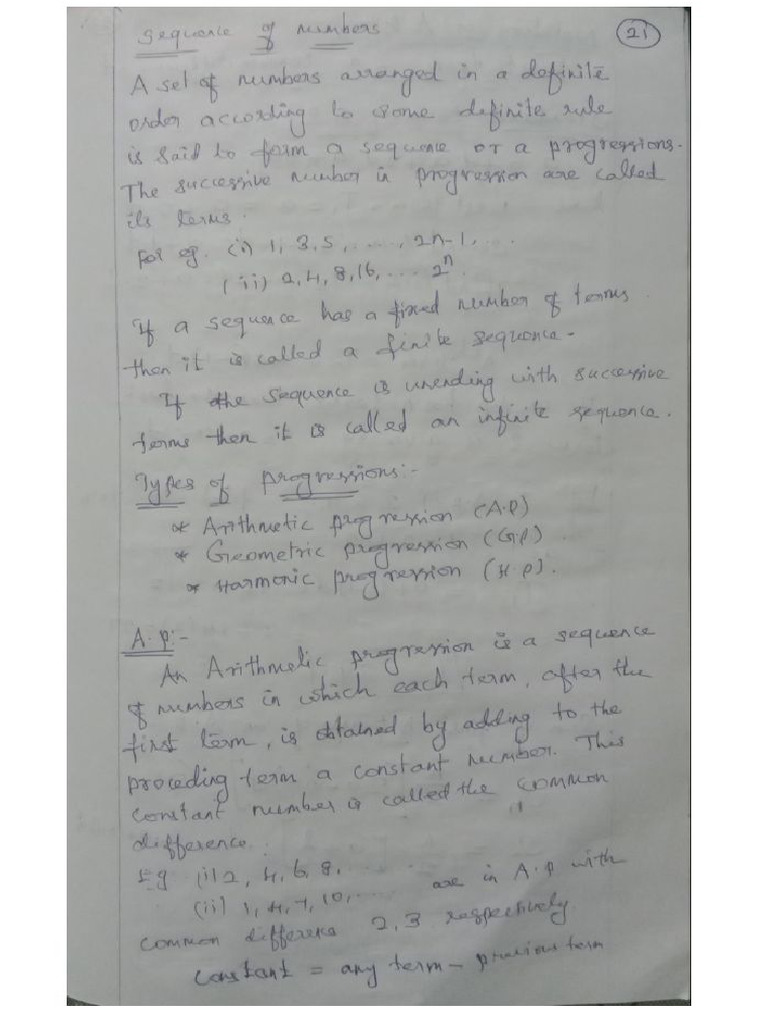 Sequence of numbers
21
A set of numbers arranged in a definite
order according to some definite rule
is said to form a sequence or a progressions.
The successive number in progression are called
its terms.
For eg. (i) 1, 3, 5, ....., 2n-1, ...
(ii) 2, 4, 8, 16, .... 2ⁿ.
If a sequence has a fixed number of terms
then it is called a finite sequence.
If the sequence is unending with successive
terms then it is called an infinite sequence.
Types of progressions:-
* Arithmetic progression (A.P)
* Geometric progression (G.P)
* Harmonic progression (H.P).
A.P:-
An Arithmetic progression is a sequence
of numbers in which each term, after the
first term, is obtained by adding to the
preceding term a constant number. This
constant number is called the common
difference.
Eg (i) 2, 4, 6, 8,
(ii) 1, 4, 7, 10, ... are in A.P with
common difference 2, 3 respectively
constant = any term - previous term